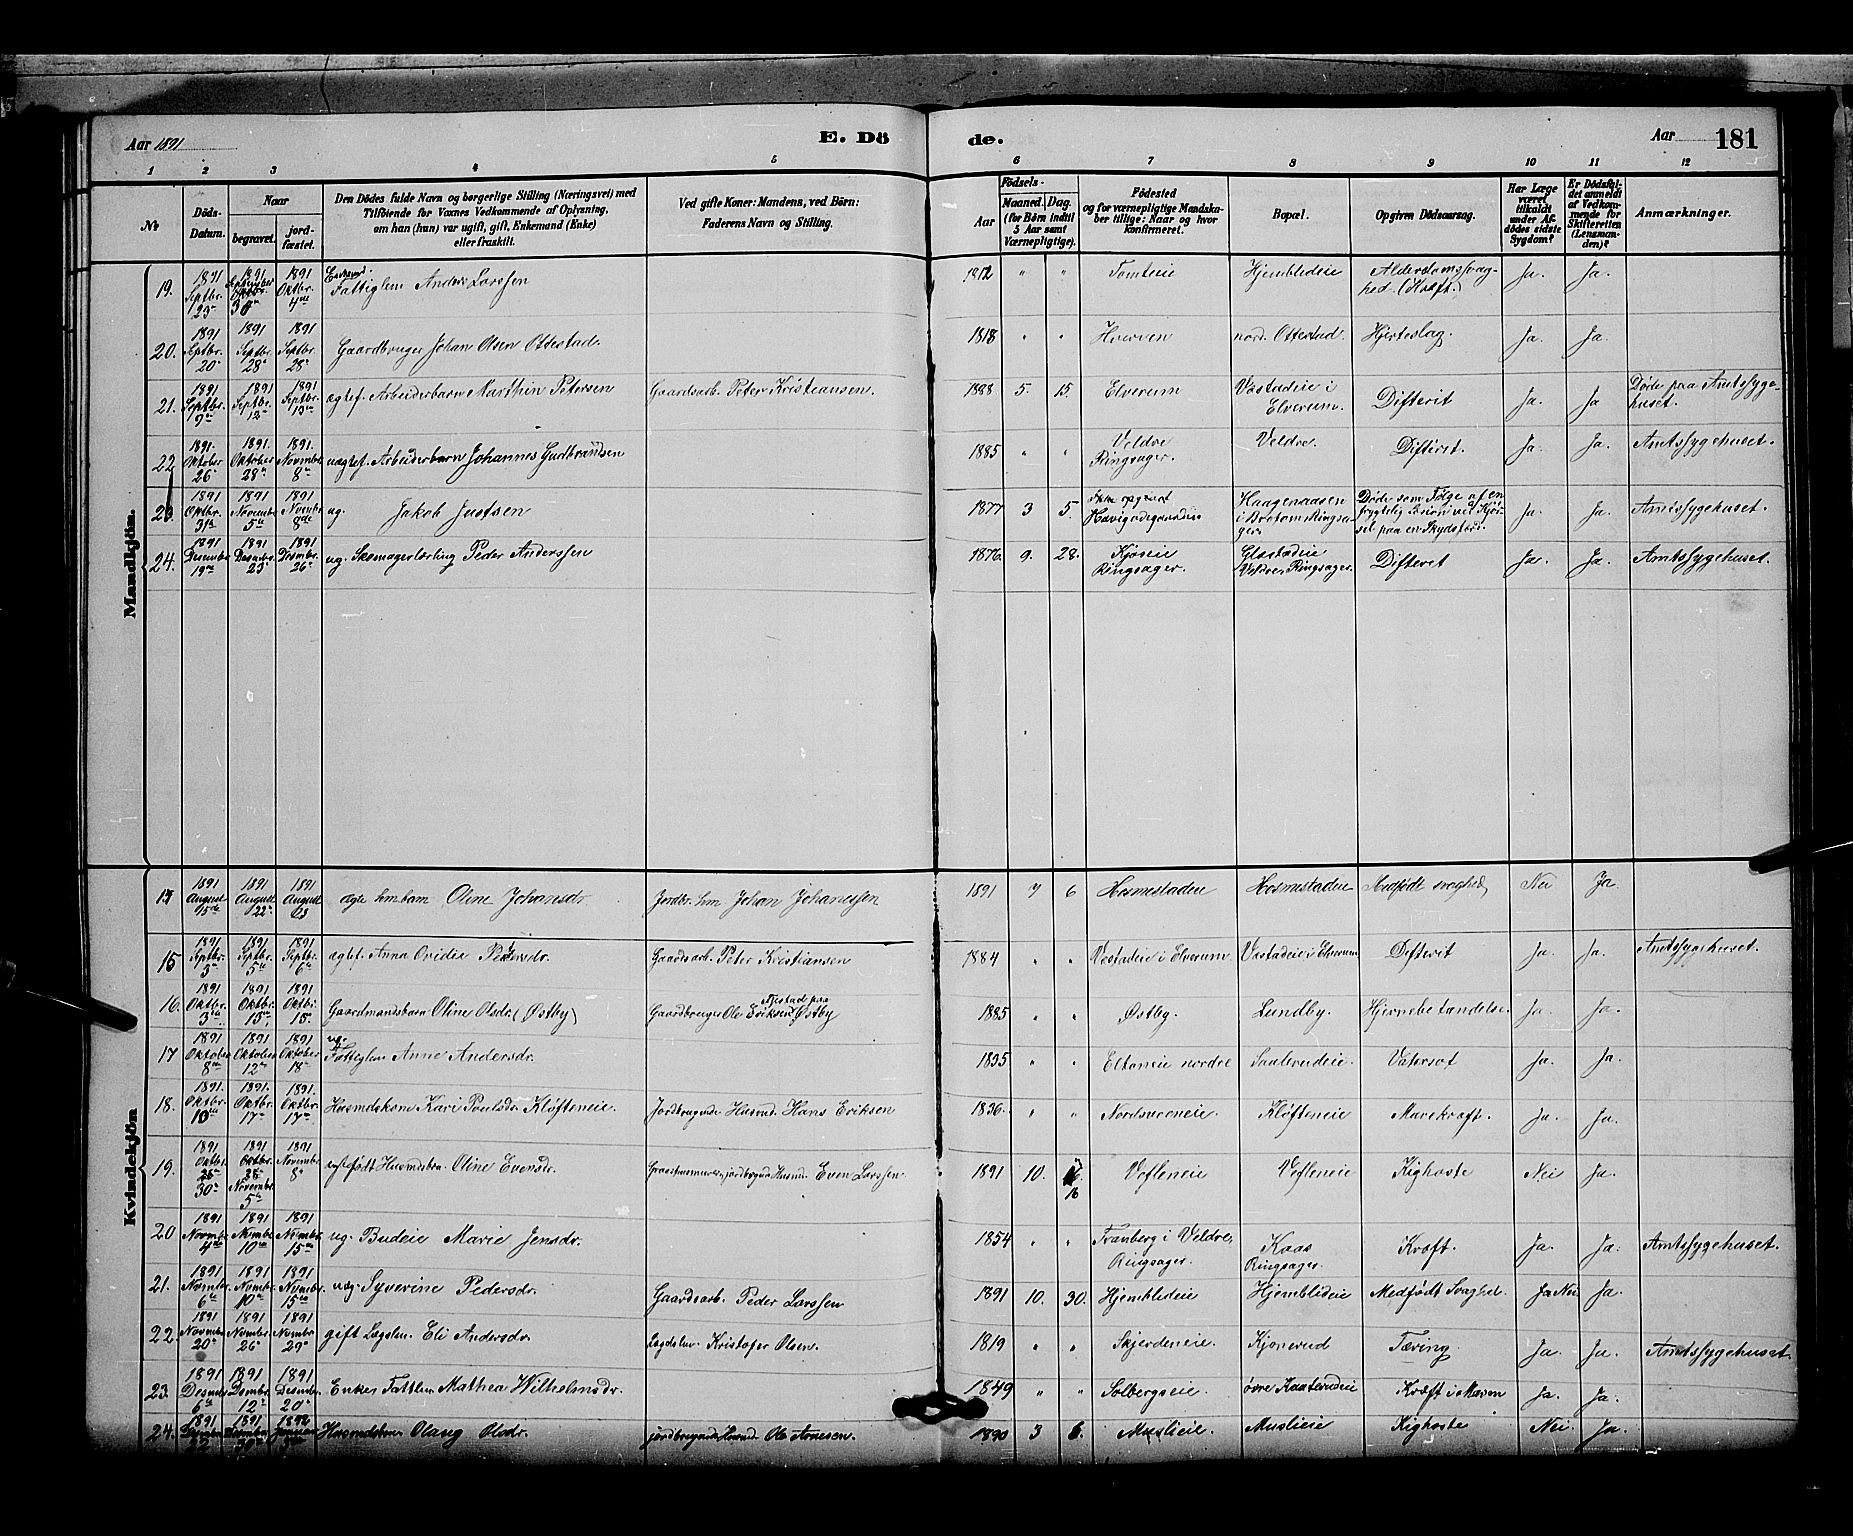 Aar 1891 E. Dö de. Aar 181
1 2 3 4 5 6 7 8 9 10 11 12
№ Döds-Datum. Naar begravet. jord-fæstet. Den Dödes fulde Navn og borgerlige Stilling (Næringsvei) med Tilföiende for Voxnes Vedkommende af Oplysning, om han (hun) var ugift, gift, Enkemand (Enke) eller fraskilt. Ved gifte Koner: Mandens, ved Börn: Faderens Navn og Stilling. Födsels- Aar Maaned. Dag. (for Börn indtil 5 Aar samt Værnepligtige). Födested og for værnepligtige Mandskaber tillige: Naar og hvor konfirmeret. Bopæl. Opgiven Dödsaarsag. Har Læge været tilkaldt under Afdödes sidste Sygdom? Er Dödsfaldet anmeldt af Vedkommende for Skifteretten (Lensmanden)? Anmærkninger.
Mandkjön.
19. 1891 Septbr. 23 1891 September 30 1891 Oktbr. 4de Enkemd. Fattiglem Anders Larssen 1812 " " Tomteie Hjemblideie Alderdomssvaghed. (Kræft.) Ja. Ja.
20. 1891 Septbr. 20 1891 Septbr. 28 1891 Septbr. 28 Gaardbruger Johan Olsen Ottestad. 1818 " " Hverven nord. Ottestad. Hjerteslag. Ja. Ja.
21. 1891 Septbr. 9de 1891 Septbr. 12 1891 Septbr. ægtef. Arbeiderbarn Marthin Petersen Gaardsarb. Peter Kristiansen. 1888 5. 15. Elverum Vastadeie i Elverum. Difterit Ja. Ja Døde paa Amtssygehuset.
22 1891. Oktober 26 1891. Oktober 28 1891. Novmbr. 8 uægtef. Arbeiderbarn Johannes Gudbrandsen 1885 " " Veldre Ringsager. Veldre. Difterit. Ja. Ja. Amtssygehuset.
23. 1891 Oktbr. 31te 1891 Novmbr. 5te 1891 Novmbr 8de ug. Jakob Justsen 1877 3 5. Kaagenaasen i Brøtum Ringsager Døde som Følge af en frygtelig Lesion ved Kjørsel paa en Skydsferd. Ja. Ja. Amtssygehuset.
24. 1891 Desember 19de 1891 Desmbr. 23 1891 Desmbr. 26 ug. Skomagerlærling Peder Anderssen 1876. 9. 28. Kjøseie Ringsager. Glæstadeie Veldre, Ringsager. Difterit Ja. Ja. Amtssygehuset.
Kvindekjön
15 1891 August 15de 1891 August 22 1891 August 23 ægte hm. barn Oline Johansdr. Jordbr. hm Johan Johanessen 1891 7 6 Hosmestadeie Hosmestadeie Medfødt svaghed Nei Ja
15 1891 Septbr. 3 1891 Septbr. 5te 1891 Septbr. 6te ægtef. Anna Ovidie Petersdr. Gaardsarb. Peter Kristiansen 1884 " " Vastadeie i Elverum. Vastadeie i Elverum Difterit Ja. Ja. Amtssygehuset.
16. 1891 Oktbr. 3die 1891 Oktbr. 15 1891 Oktbr. 15 Gaardmandsbarn Oline Olsdr. (Østby) Gaardbruger Ole Eriksen Østby 1885 " " Østby. Lundby. Hjernebetændelse. Ja. Ja.
17 1891 Oktober 8de 1891 Oktober 12 1891 Oktober 18 ug. Fattiglem Anne Andersdr. 1835 " " Eltoneie nordre Saaterudeie. Vatersot Ja. Ja.
18. 1891. Oktbr. 10de 1891. Oktbr. 17 1891. Oktbr. 17 Husmdskone Kari Poulsdr. Kløfteneie. Jordbrugende Husmd. Hans Eriksen 1836. " " Nordsveeneie Kløfteneie Mavekræft. Ja. Ja.
19. 1891 Oktbr. 30 1891 Oktbr. 28 Novembr. 5te 1891 Novembr 8 ægtefødt Husmdsbn. Oline Evensdr. jordbrugnd Husmd. Even Larssen. 1891 10. 16 Vefleneie Vefleneie Kighoste Nei Ja.
20 1891 Novmbr. 4de 1891 Nvmbr. 10de 1891 Nvmbr. 15de ug. Budeie Marie Jensdr. 1854 " " Tranberg i Veldre, Ringsager. Kaas Ringsager. Kræft. Ja. Ja. Amtssygehuset.
21. 1891 Novmbr. 6te 1891 Novmbr. 10de 1891 Novmbr. 15de uæg. Syverine Pedersdr. Gaardsarb. Peder Larssen 1891 10. 30. Hjemblideie Hjemblideie Medfødt Svaghed. Ja Nei Ja.
22. 1891 Novmbr. 20 1891 Novmbr. 26 1891 Novmbr. 29 gift Lægslm. Eli Andersdr. Lægdslm. Kristofer Olsen. 1819 " " Skjerdeneie. Kjonerud Tæring. Ja. Ja. Amtssygehuset.
23. 1891 Desmbr. 6te 1891 Dsmbr. 12te 1891 Desmbr. 20 Enken Fattlm Mathea Wilhelmsdr. 1849 " " Solbergseie. øvre Kaaterudeie Kræft i Maven Ja. Ja.
24. 1891 Desmbr. 22 1891 Desmbr. 30 1892 Januar 3die Husmdsbn. Olaug Olsdr. jordbrugende Husmd. Ole Arnesen. 1890 3 6. Muslieie. Muslieie Kighoste Nei. Ja.